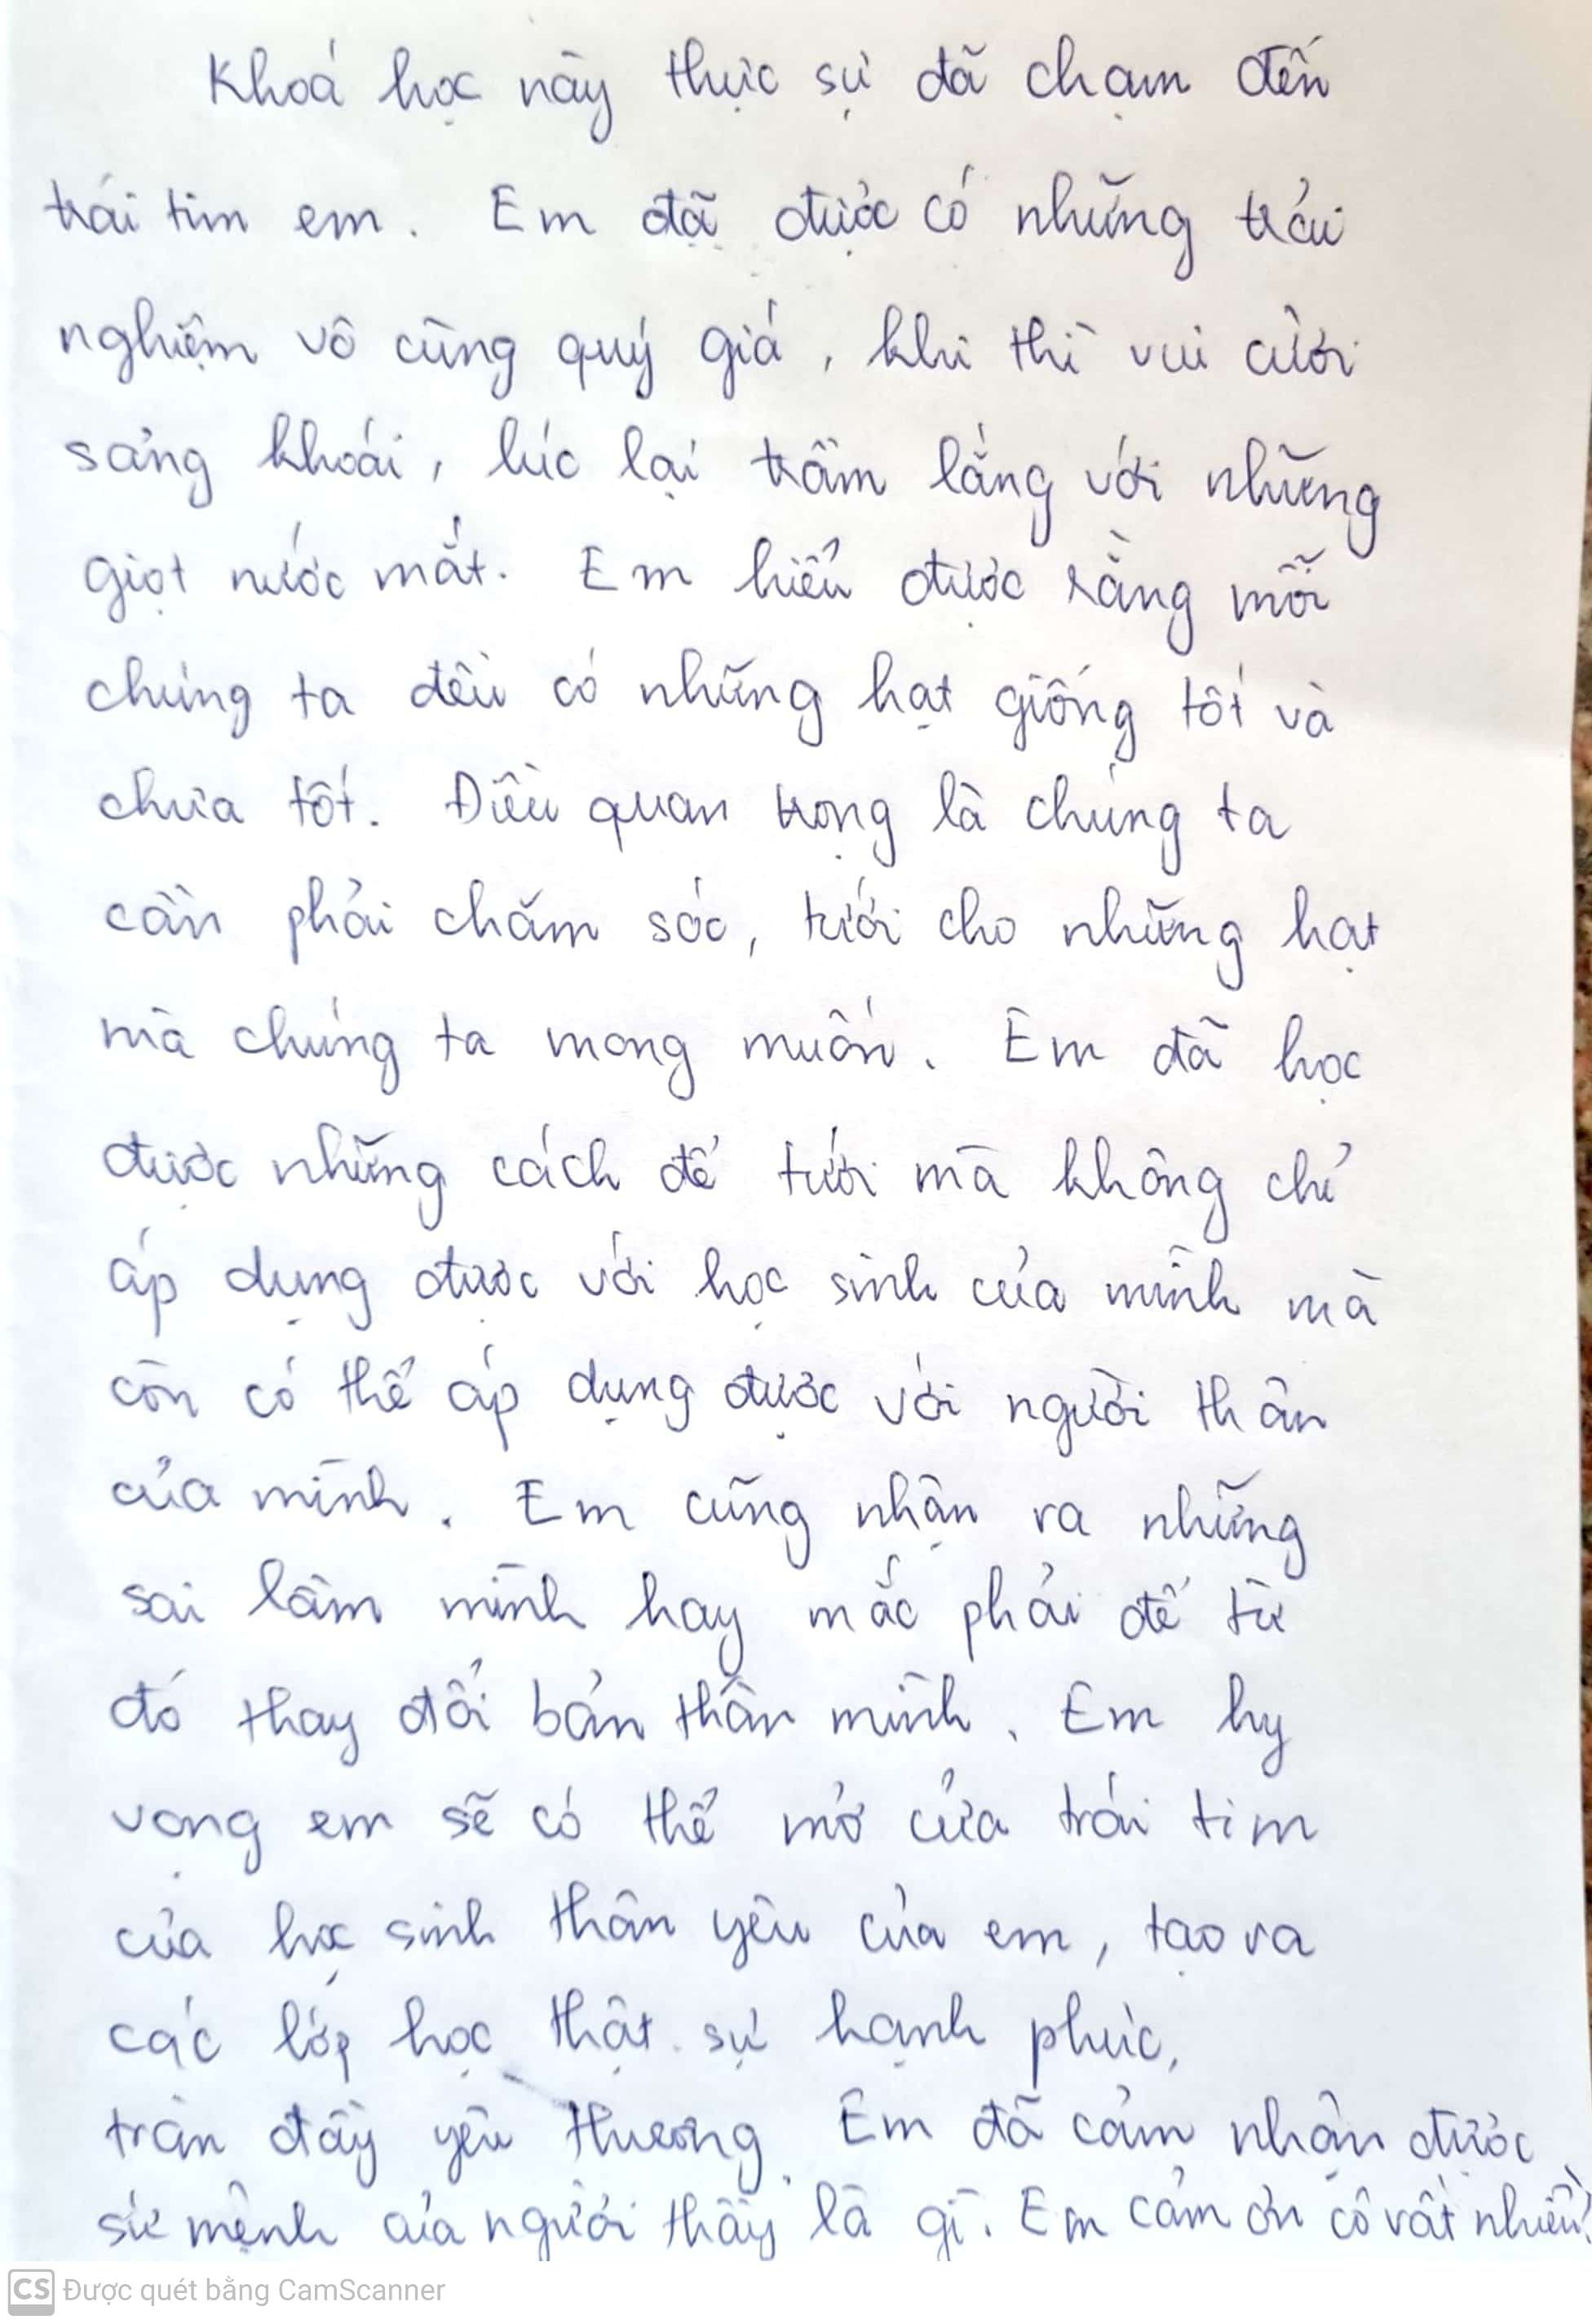 Khoá học này thực sự đã chạm đến
trái tim em. Em đã được có những trải
nghiệm vô cùng quý giá, khi thì vui cười
sảng khoái, lúc lại trầm lắng với những
giọt nước mắt. Em hiểu được rằng mỗi
chúng ta đều có những hạt giống tốt và
chưa tốt. Điều quan trọng là chúng ta
cần phải chăm sóc, tưới cho những hạt
mà chúng ta mong muốn. Em đã học
được những cách để tưới mà không chỉ
áp dụng được với học sinh của mình mà
còn có thể áp dụng được với người thân
của mình. Em cũng nhận ra những
sai lầm mình hay mắc phải để từ
đó thay đổi bản thân mình. Em hy
vọng em sẽ có thể mở cửa trái tim
của học sinh thân yêu của em, tạo ra
các lớp học thật sự hạnh phúc,
tràn đầy yêu thương. Em đã cảm nhận được
sứ mệnh của người thầy là gì. Em cảm ơn cô rất nhiều!
CS Được quét bằng CamScanner